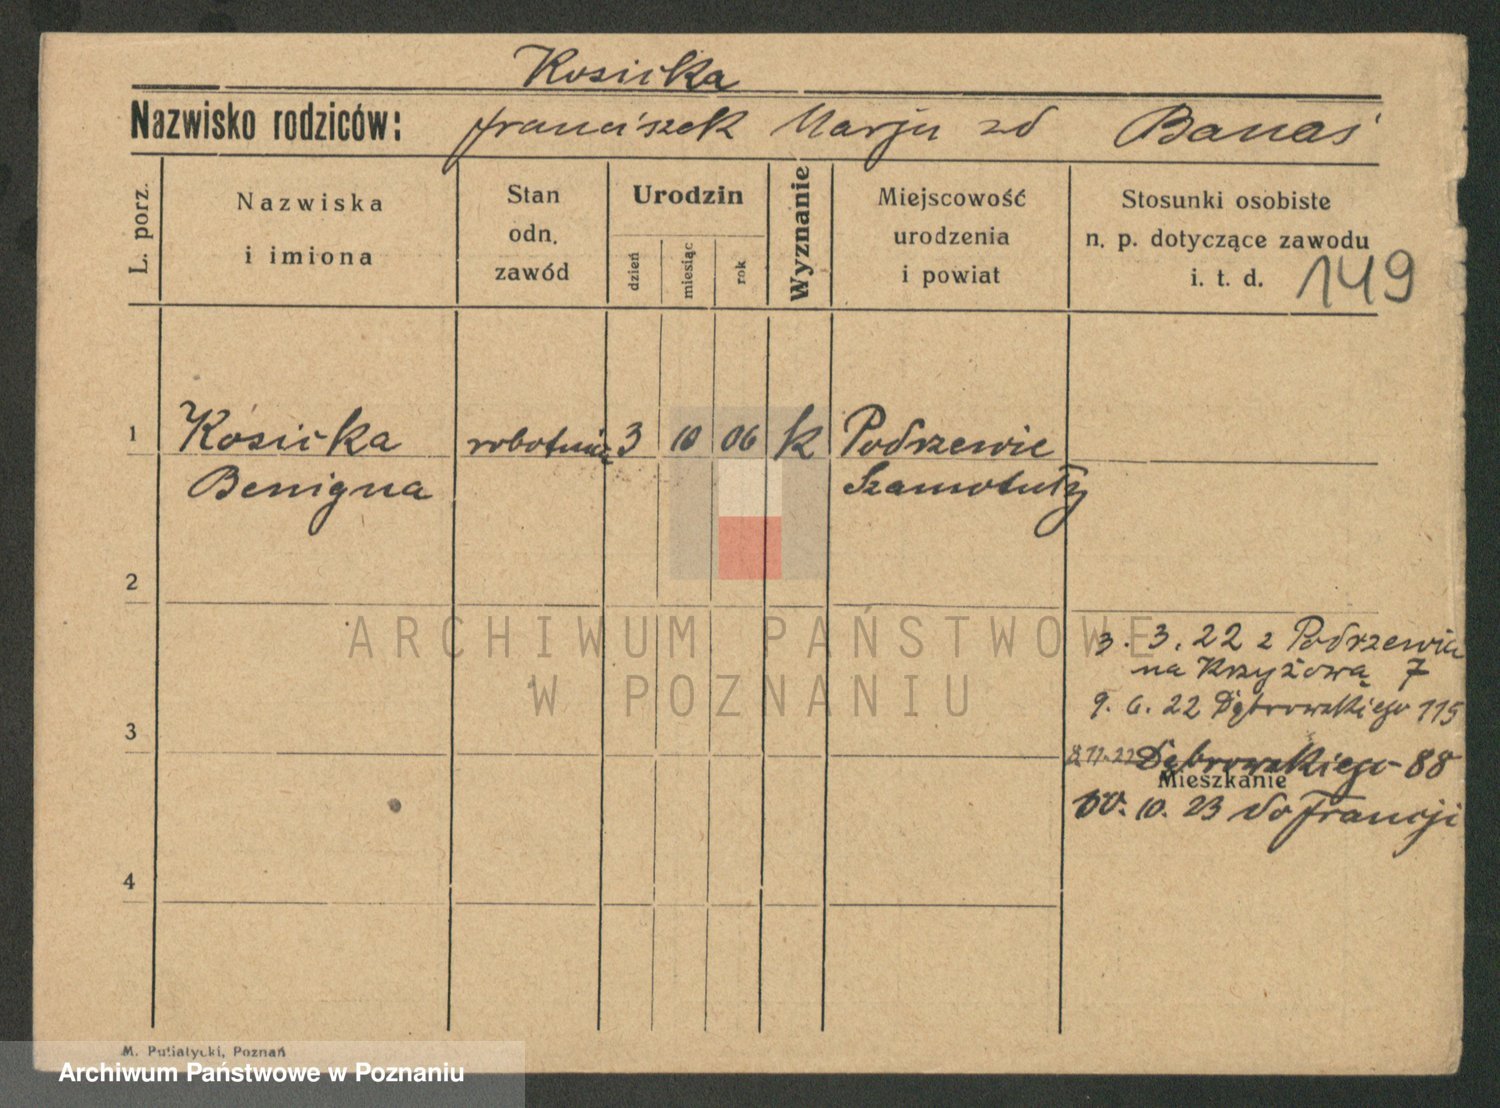 Kosicka
Nazwisko rodziców: Franciszek Marja zd Banaś
L. porz.
Nazwiska
i imiona
Stan
odn.
zawód
Urodzin
dzień
miesiąc
rok
Wyznanie
Miejscowość
urodzenia
i powiat
Stosunki osobiste
n. p. dotyczące zawodu
i. t. d. 149
1 Kosicka robotnica 3 10 06 k Podrzewie
Benigna Szamotuły
2
ARCHIWUM PAŃSTWOWE
W POZNANIU
3. 3. 22 z Podrzewia
na Krzyżową 7
9. 6. 22 Dąbrowskiego 115
3
8.11.22 Dąbrowskiego 88
Mieszkanie
10. 23 do Francji
4
M. Putiatycki, Poznań
Archiwum Państwowe w Poznaniu